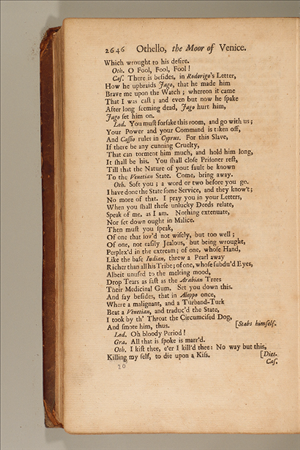 2646 Othello, the Moor of Venice.
Which wrought to his desire.
Oth. O Fool, Fool, Fool!
Cas. There is besides, in Roderigo's Letter,
How he upbraids Jago, that he made him
Brave me upon the Watch; whereon it came
That I was cast; and even but now he spake
After long seeming dead, Jago hurt him,
Jago set him on.
Lod. You must forsake this room, and go with us;
Your Power and your Command is taken off,
And Cassio rules in Cyprus. For this Slave,
If there be any cunning Cruelty,
That can torment him much, and hold him long,
It shall be his. You shall close Prisoner rest,
Till that the Nature of your fault be known
To the Venetian State. Come, bring away.
Oth. Soft you; a word or two before you go.
I have done the State some Service, and they know't;
No more of that. I pray you in your Letters,
When you shall these unlucky Deeds relate,
Speak of me, as I am. Nothing extenuate,
Nor set down ought in Malice.
Then must you speak,
Of one that lov'd not wisely, but too well;
Of one, not easily Jealous, but being wrought,
Perplex'd in the extream; of one, whose Hand,
Like the base Indian, threw a Pearl away
Richer than all his Tribe; of one, whose subdu'd Eyes,
Albeit unused to the melting mood,
Drop Tears as fast as the Arabian Trees
Their Medicinal Gum. Set you down this.
And say besides, that in Aleppo once,
Where a malignant, and a Turband-Turk
Beat a Venetian, and traduc'd the State,
I took by th' Throat the Circumcised Dog,
And smote him, thus. [Stabs himself.
Lod. Oh bloody Period!
Gra. All that is spoke is marr'd.
Oth. I kist thee, e'er I kill'd thee: No way but this,
Killing my self, to die upon a Kiss. [Dies.
Cas.